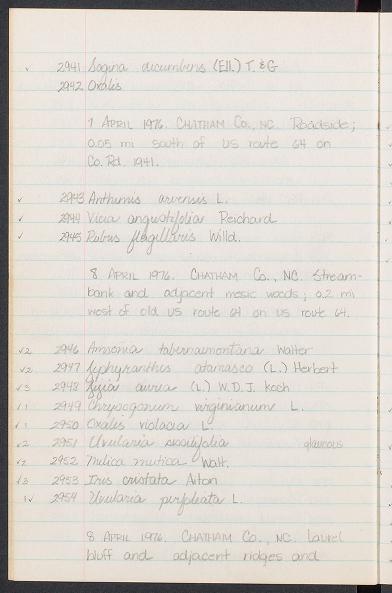 ✓ 2941 Sagina decumbens (Ell.) T. & G
2942 Oxalis
7 APRIL 1976. CHATHAM CO., NC. Roadside;
0.05 mi south of US route 64 on
Co. Rd. 1941.
✓ 2943 Anthemis arvensis L.
✓ 2944 Vicia angustifolia Reichard
✓ 2945 Rubus flagellaris Willd.
8 APRIL 1976. CHATHAM CO., NC. Stream-
bank and adjacent mesic woods; 0.2 mi
west of old US route 64 on US route 64.
✓2 2946 Amsonia tabernaemontana Walter
✓2 2947 Zephyranthes atamasco (L.) Herbert
✓3 2948 Zizia aurea (L.) W.D.J. Koch
✓1 2949 Chrysogonum virginianum L.
✓1 2950 Oxalis violacea L.
✓2 2951 Uvularia sessilifolia glaucous
✓2 2952 Melica mutica Walt.
✓3 2953 Iris cristata Aiton
1✓ 2954 Uvularia perfoliata L.
8 APRIL 1976. CHATHAM CO., NC. Laurel
bluff and adjacent ridges and